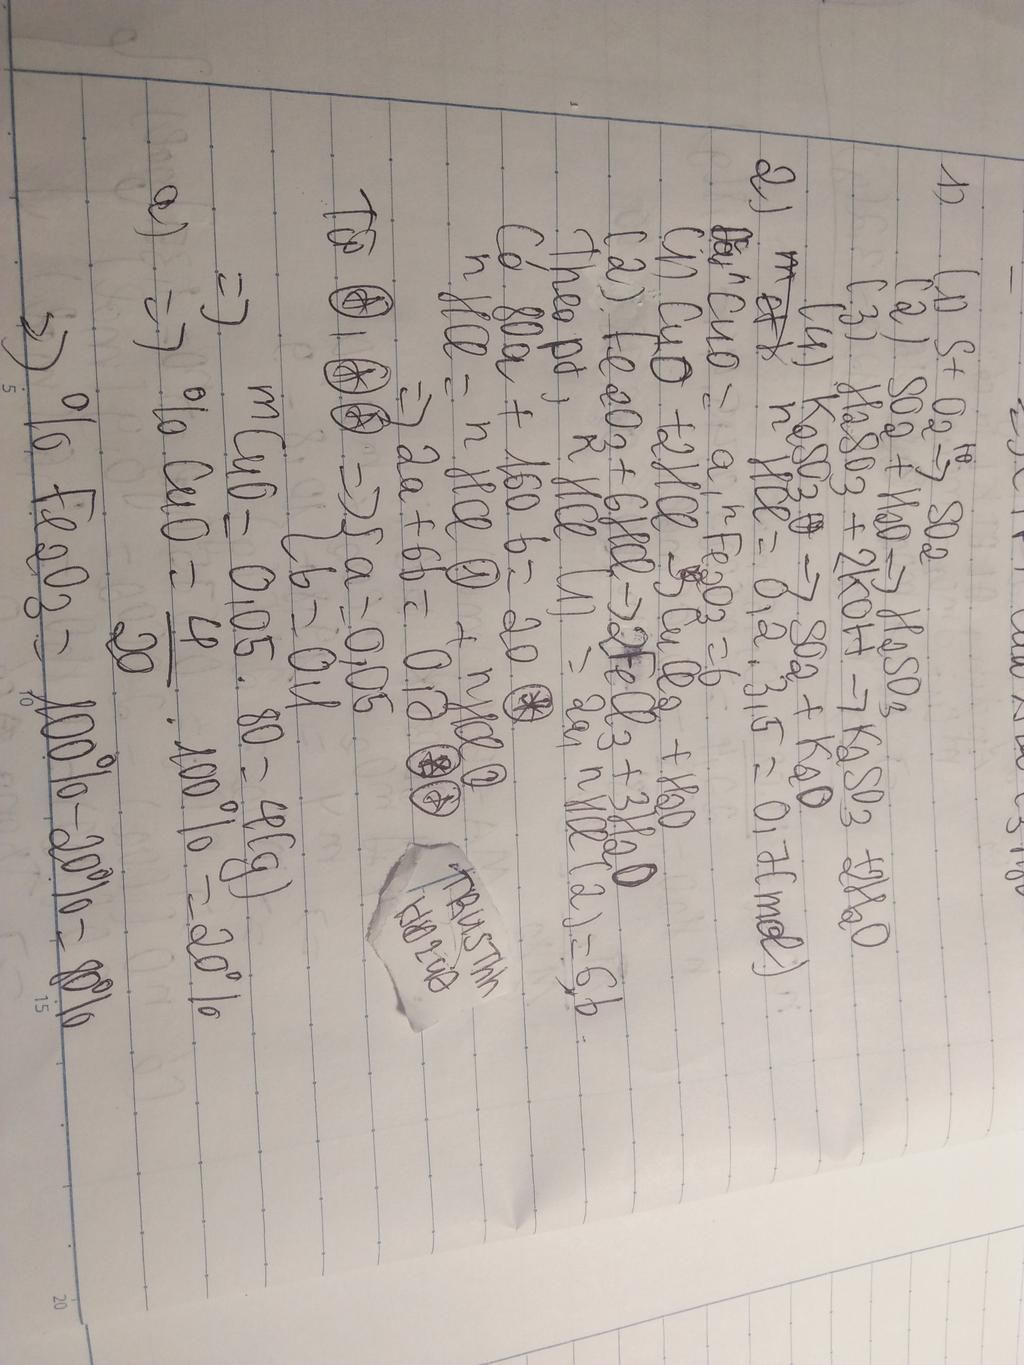 1) (1) S + O2 -> SO2
to
(2) SO2 + H2O -> H2SO3
(3) H2SO3 + 2KOH -> K2SO3 + 2H2O
(4) K2SO3 -> SO2 + K2O
2) n HCl = 0,2 . 3,5 = 0,7 (mol)
n CuO = a, n Fe2O3 = b
(1) CuO + 2HCl -> CuCl2 + H2O
(2) Fe2O3 + 6HCl -> 2FeCl3 + 3H2O
Theo pt, n HCl (1) = 2a, n HCl (2) = 6b
Có 80a + 160b = 20 (*)
n HCl = n HCl (1) + n HCl (2)
=> 2a + 6b = 0,7 (*)(*)
Từ (*), (*)(*) => { a = 0,05
{ b = 0,1
=> mCuO = 0,05 . 80 = 4(g)
a) => % CuO = 4/20 . 100% = 20%
b) % Fe2O3 = 100% - 20% = 80%